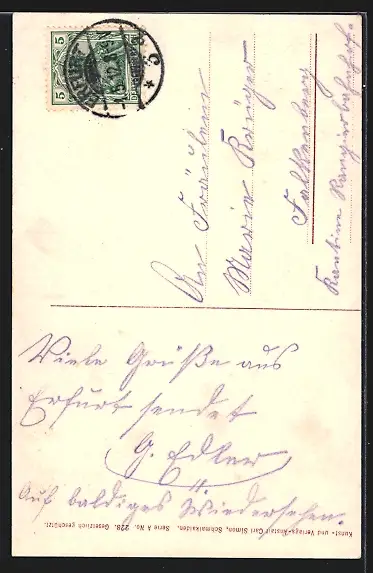 An Fräulein
Marie Krüger
Falkenberg
Kantine Rangierbahnhof.
Viele Grüße aus
Erfurt sendet
G. Edler
Auf baldiges Wiedersehen.
Kunst- und Verlags-Anstalt Carl Simon, Schmalkalden. Serie A No. 228. Gesetzlich geschützt.
5
5
ERFURT